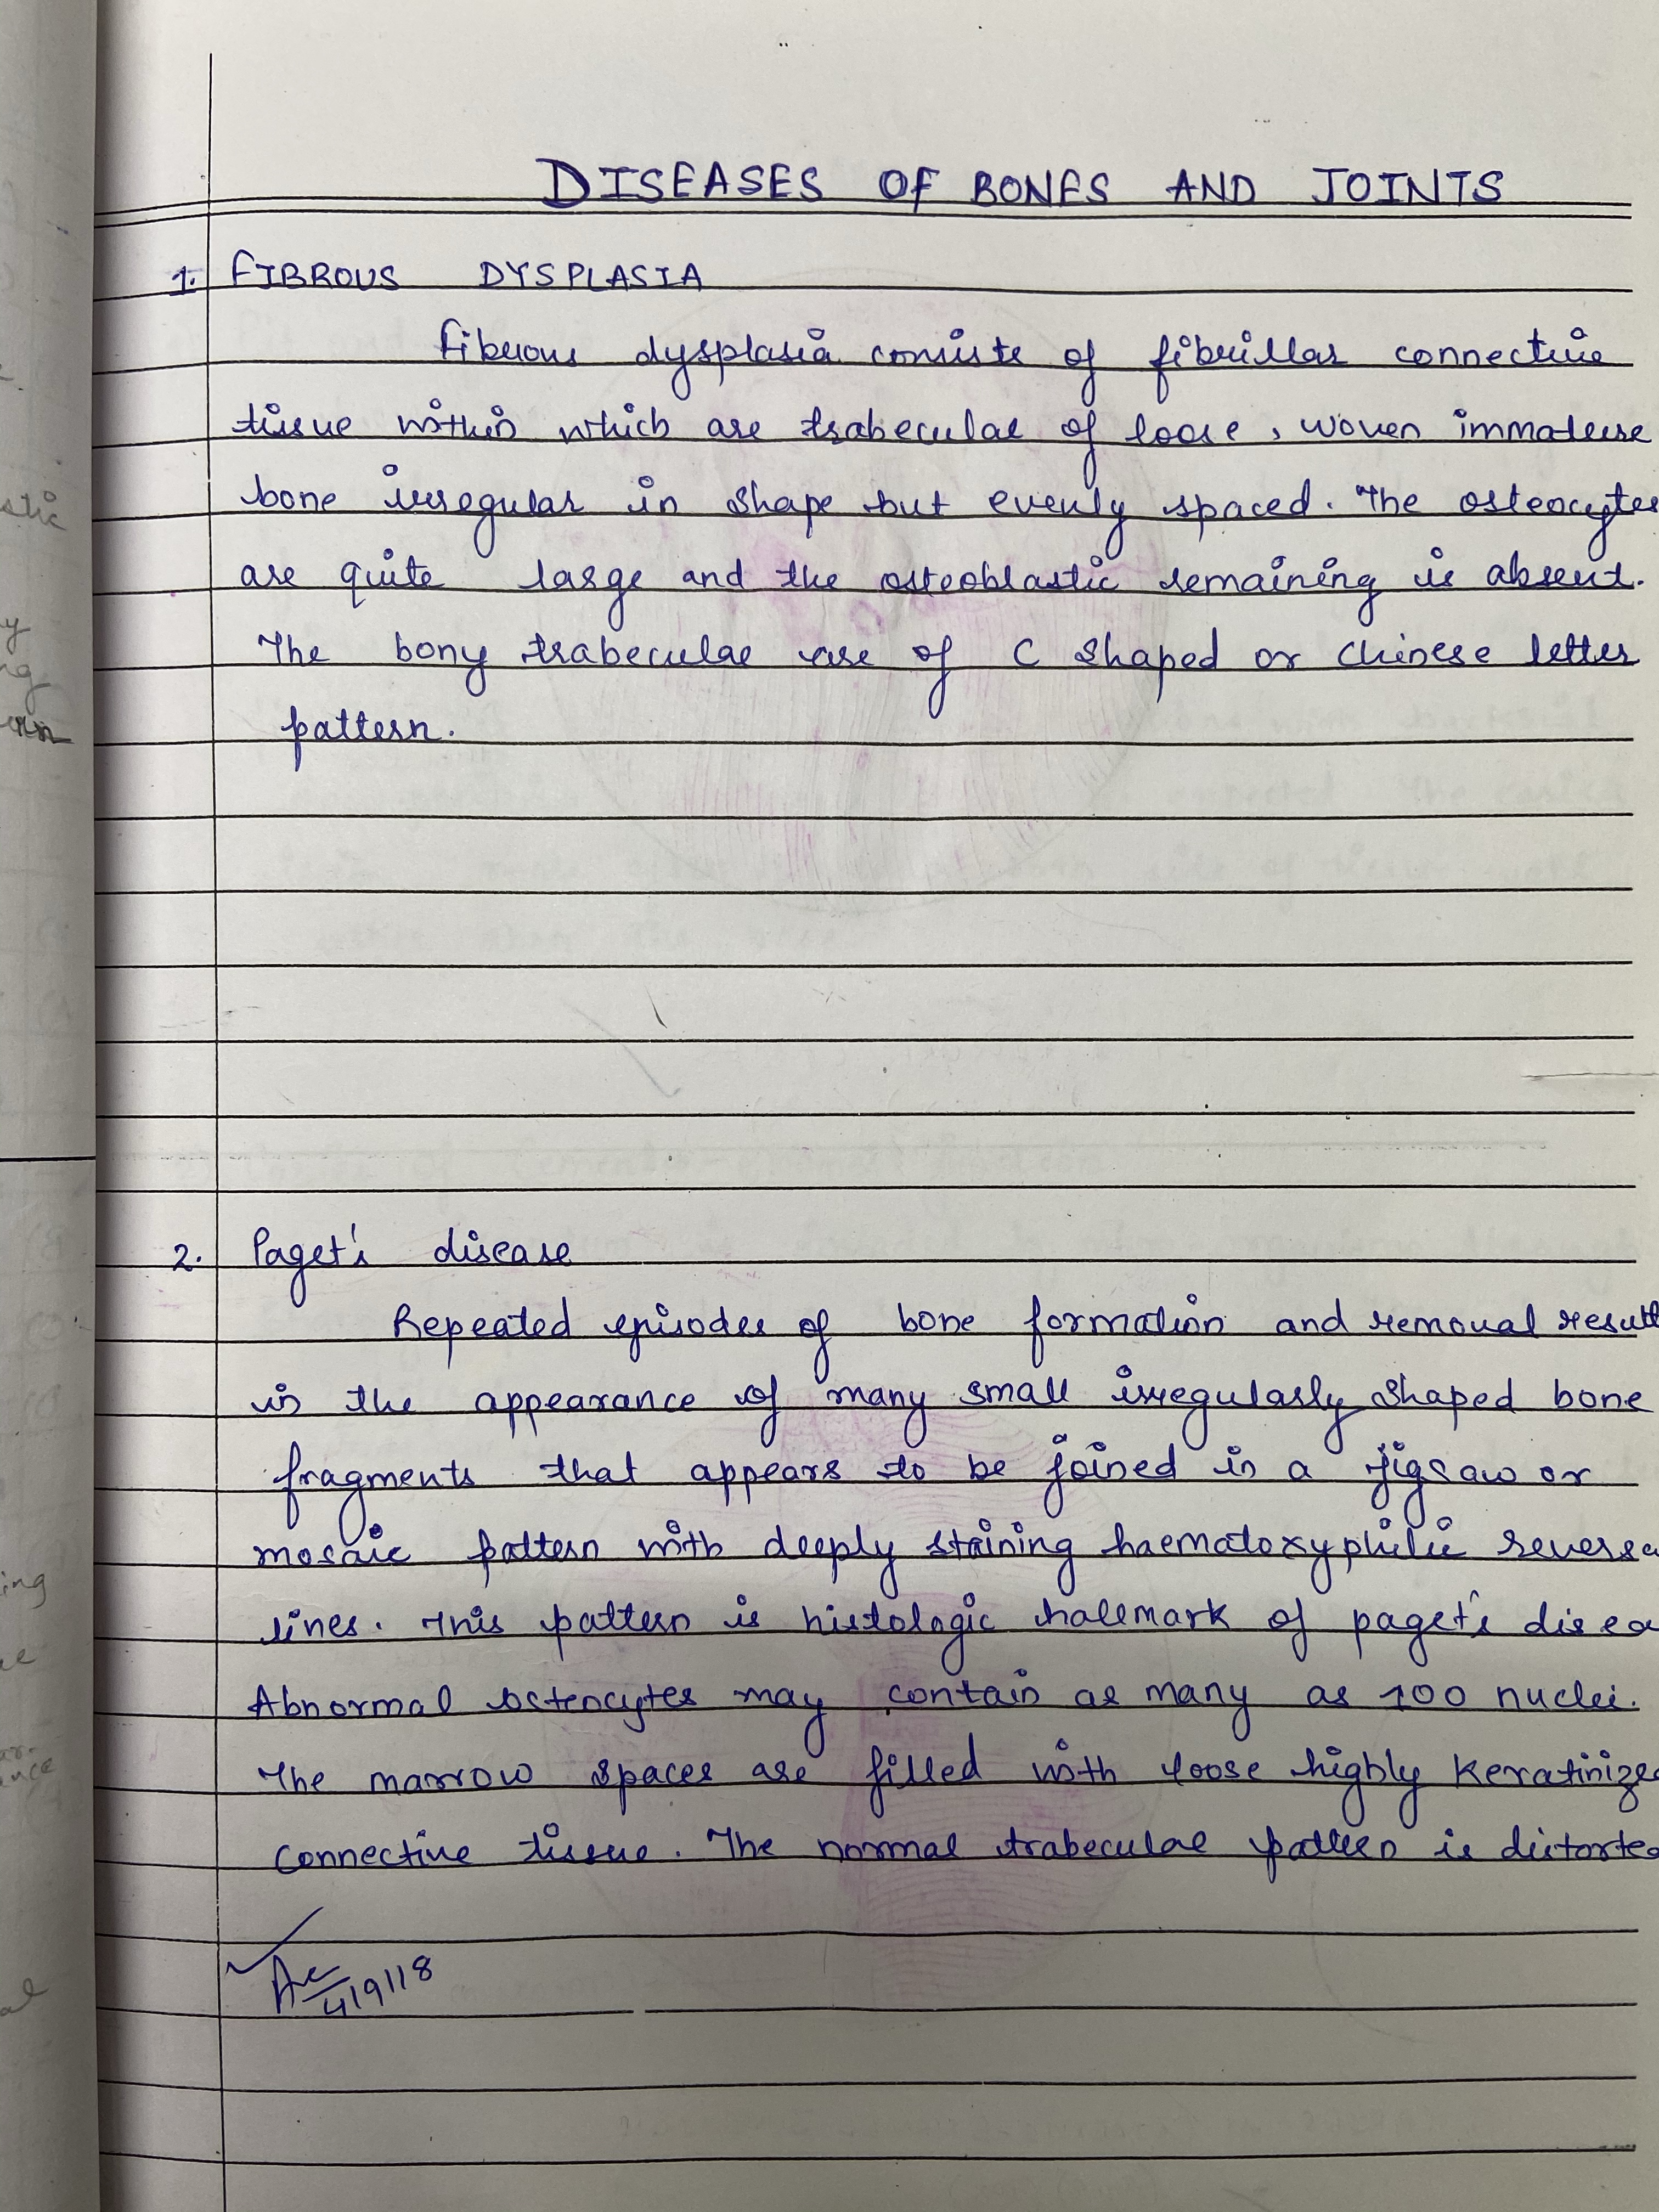 DISEASES OF BONES AND JOINTS
1. FIBROUS DYSPLASIA
Fibrous dysplasia consists of fibrillar connective
tissue within which are trabeculae of loose, woven immature
bone irregular in shape but evenly spaced. The osteocytes
are quite large and the osteoblastic remaining is absent.
The bony trabeculae are of C shaped or chinese letter
pattern.
2. Paget's disease
Repeated episodes of bone formation and removal result
in the appearance of many small irregularly shaped bone
fragments that appears to be joined in a jigsaw or
mosaic pattern with deeply staining haematoxyphilic reversa
lines. This pattern is histologic hallmark of paget's disea
Abnormal octeocytes may contain as many as 100 nuclei.
The marrow spaces are filled with loose highly keratinize
connective tissue. The normal trabeculae pattern is distorte
4/9/18
stic
y
ng
ing